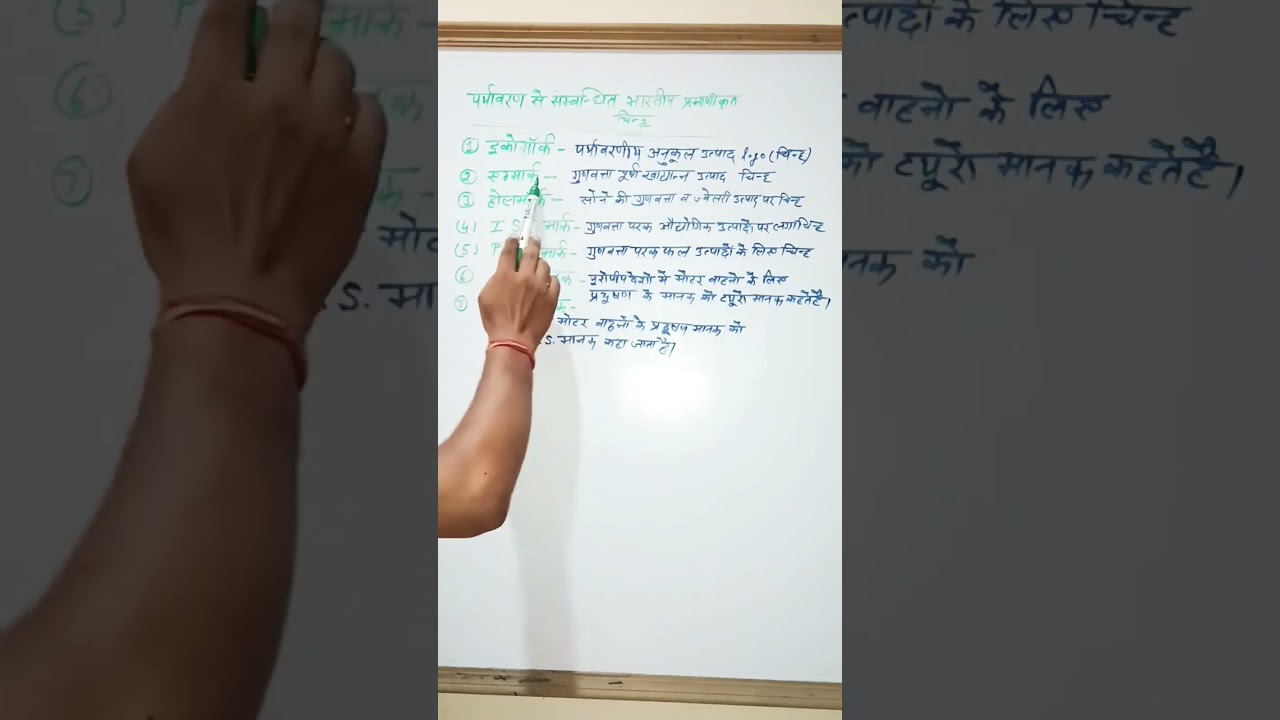 पर्यावरण से सम्बन्धित भारतीय प्रमाणीकृत
चिन्ह
① इकोमॉर्क - पर्यावरणीय अनुकूल उत्पाद logo (चिन्ह)
② एगमार्क - गुणवत्ता पूर्ण खाद्यान्न उत्पाद चिन्ह
③ होलमार्क - सोने की गुणवत्ता व ज्वेलरी उत्पाद पर चिन्ह
(4) I. S. मार्क - गुणवत्ता परक औद्योगिक उत्पादों पर लगा चिन्ह
(5) मार्क - गुणवत्ता परक फल उत्पादों के लिए चिन्ह
⑥ - यूरोपीय देशो में मोटर वाहनो के लिए
प्रदूषण के मानक को टयूरो मानक कहते है।
⑦
मोटर वाहनो के प्रदूषण मानक को
.S. मानक कहा जाता है।